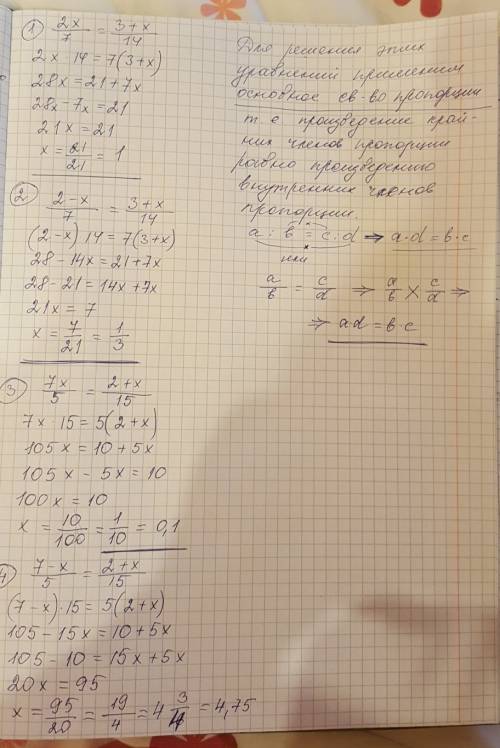 1) 2x/7 = 3+x/14
2x·14 = 7(3+x)
28x = 21+7x
28x-7x = 21
21x = 21
x = 21/21 = 1
2) 2-x/7 = 3+x/14
(2-x)·14 = 7(3+x)
28-14x = 21+7x
28-21 = 14x+7x
21x = 7
x = 7/21 = 1/3
3) 7x/5 = 2+x/15
7x·15 = 5(2+x)
105x = 10+5x
105x - 5x = 10
100x = 10
x = 10/100 = 1/10 = 0,1
4) 7-x/5 = 2+x/15
(7-x)·15 = 5(2+x)
105-15x = 10+5x
105-10 = 15x+5x
20x = 95
x = 95/20 = 19/4 = 4 3/4 = 4,75
Для решения этих
уравнений применим
основное св-во пропорции
т.е произведение край-
них членов пропорции
равно произведению
внутренних членов
пропорции.
a : b = c : d ⇒ a·d = b·c
или
a/b = c/d ⇒ a/b × c/d ⇒
⇒ a·d = b·c